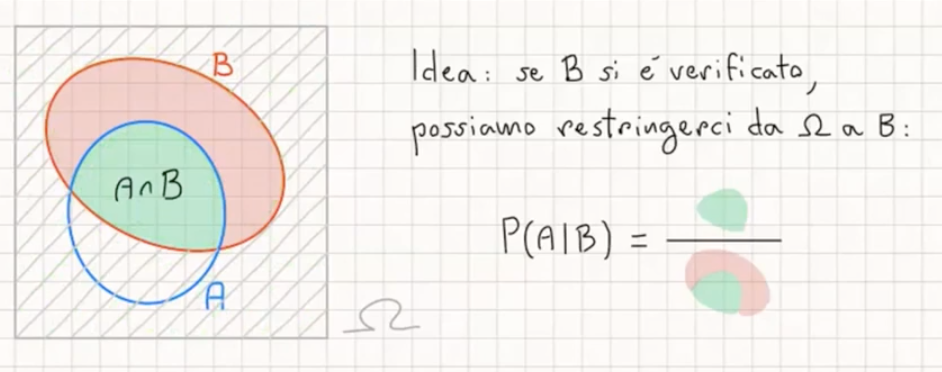 B
A∩B
A
Ω
Idea: se B si é verificato,
possiamo restringerci da Ω a B:
P(A|B) =